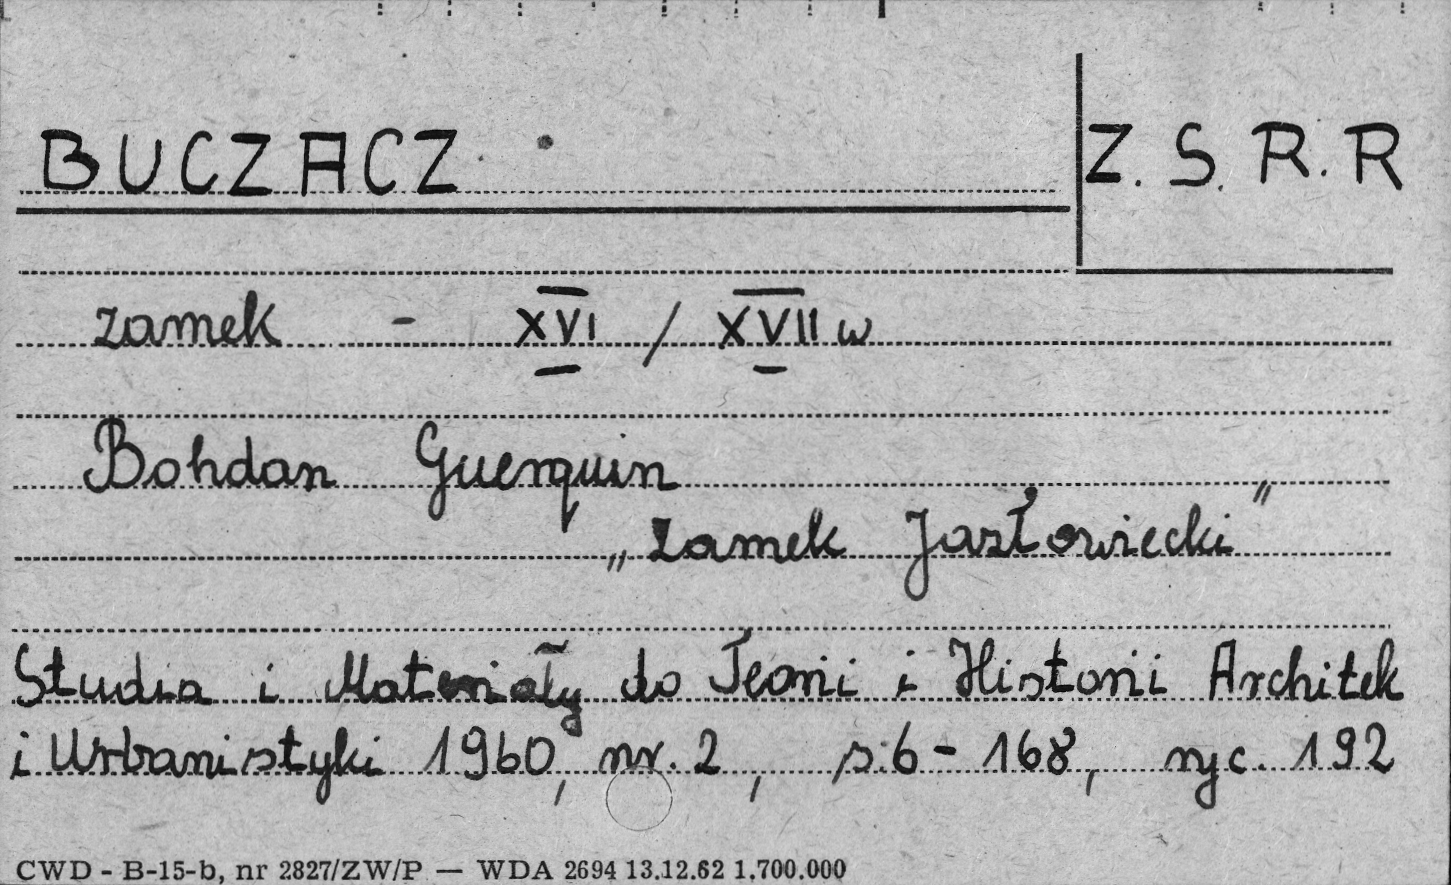 BUCZACZ Z.S.R.R
zamek - XVI / XVII w
Bohdan Guerquin
„Zamek Jazłowiecki”
Studia i Materiały do Teorii i Historii Architek
i Urbanistyki 1960, nr. 2, s.6 - 168, ryc. 192
CWD - B-15-b, nr 2827/ZW/P — WDA 2694 13.12.62 1.700.000